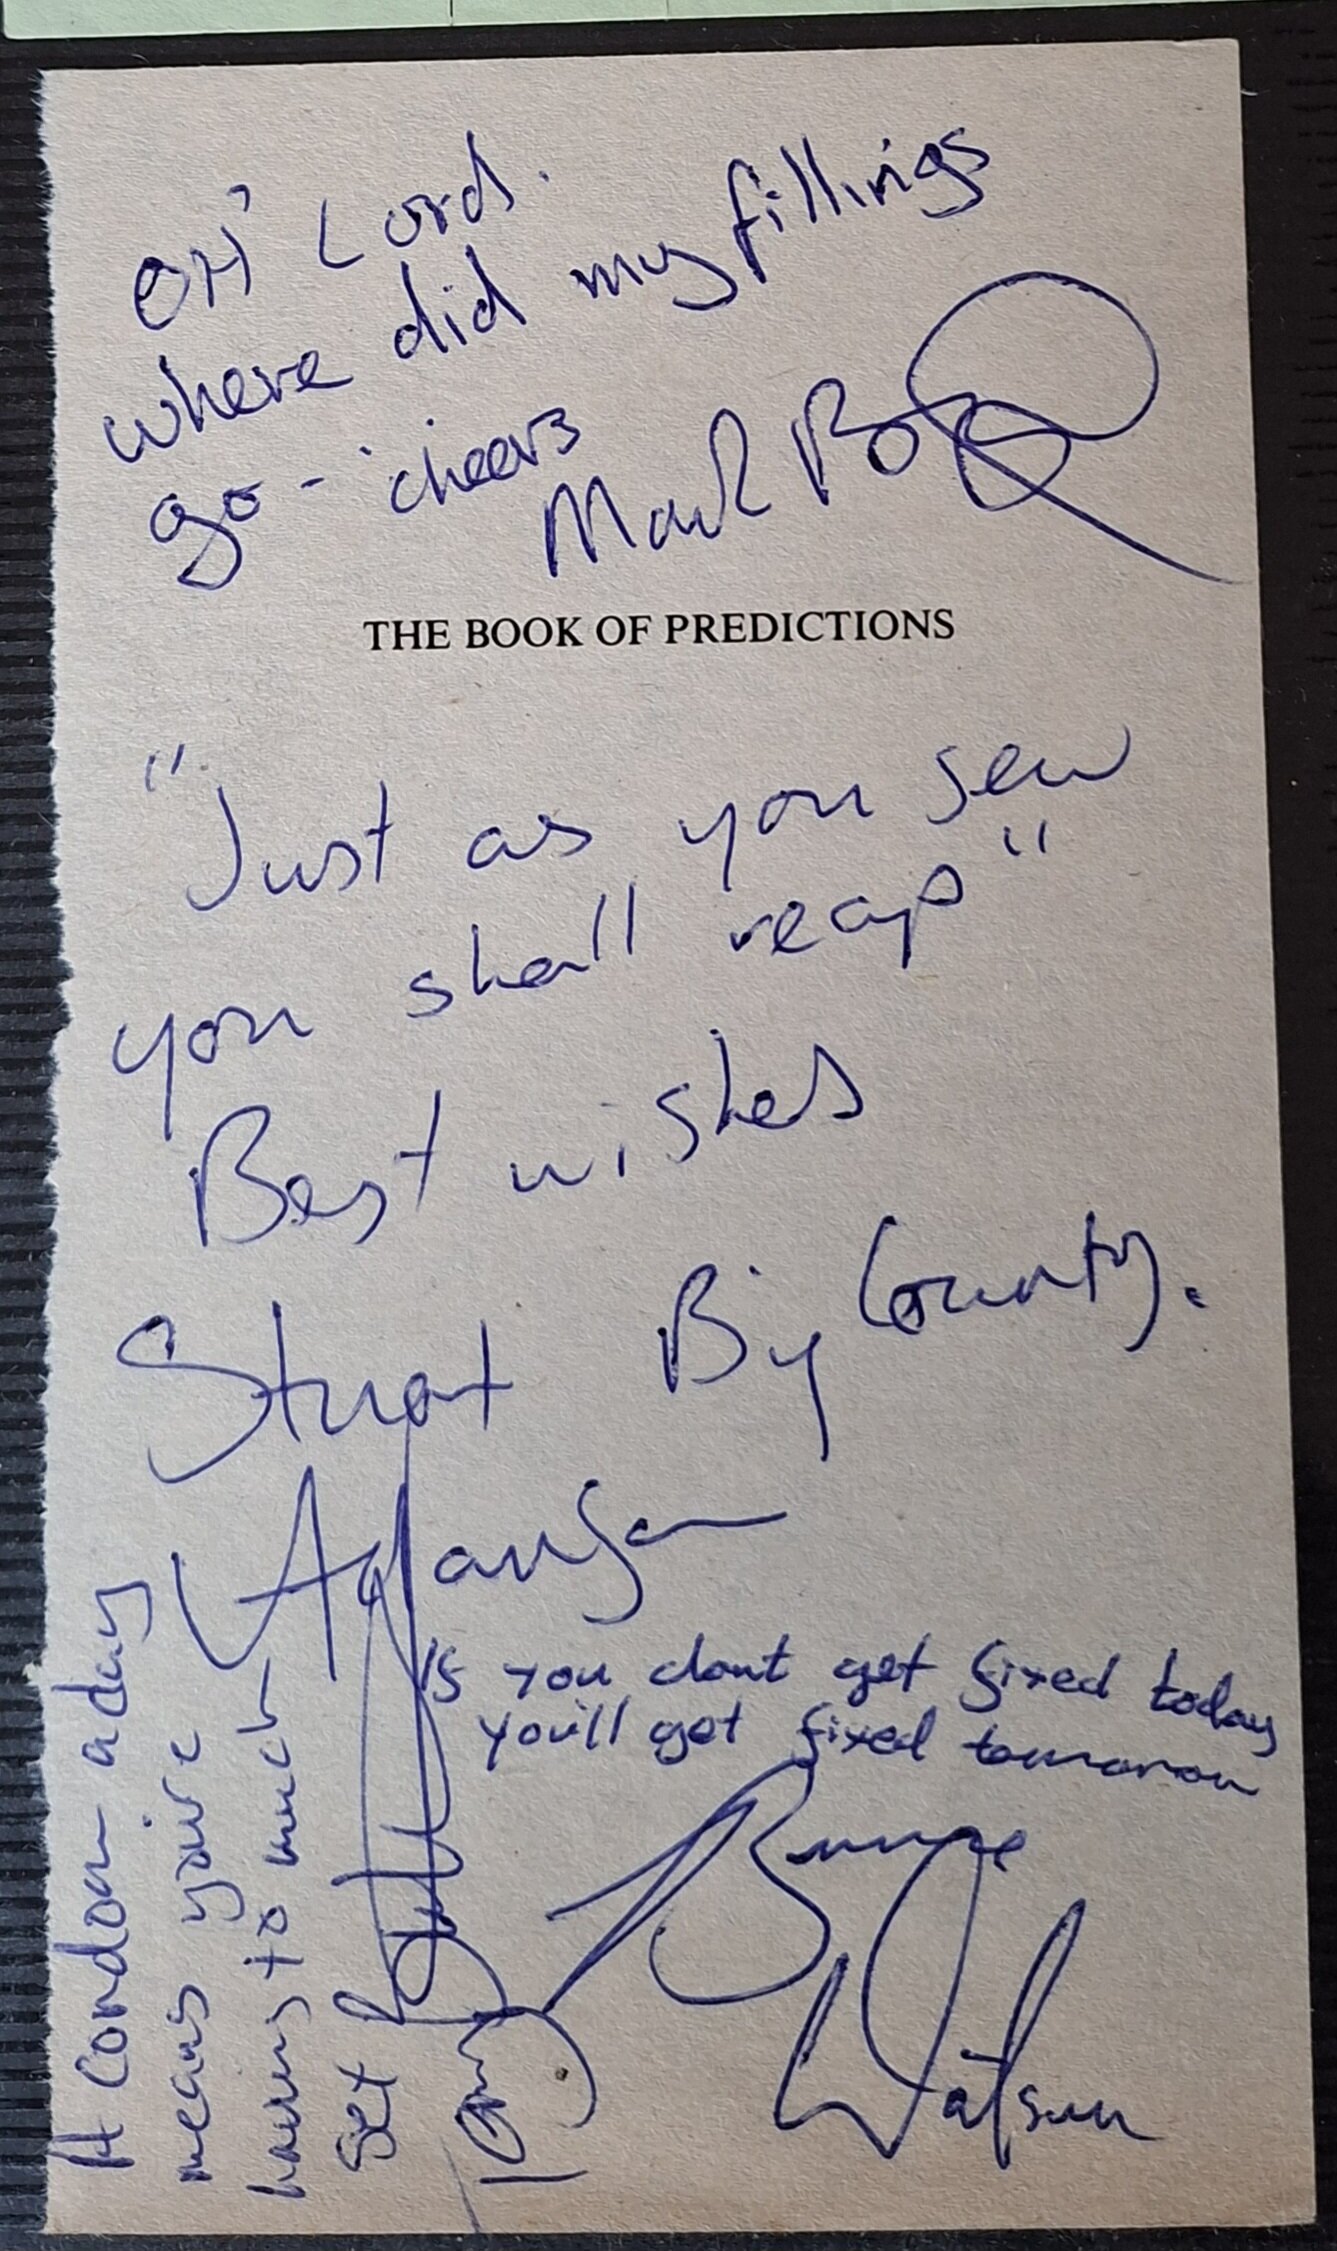 OH' Lord.
where did my fillings
go - cheers
Mark
THE BOOK OF PREDICTIONS
"Just as you sew
you shall reap"
Best wishes
Stuart Big Country.
Adamson
If you dont get fixed today
you'll get fixed tomorrow
Bruce
Watson
A condom a day
means you're
having to much
sex
Tony